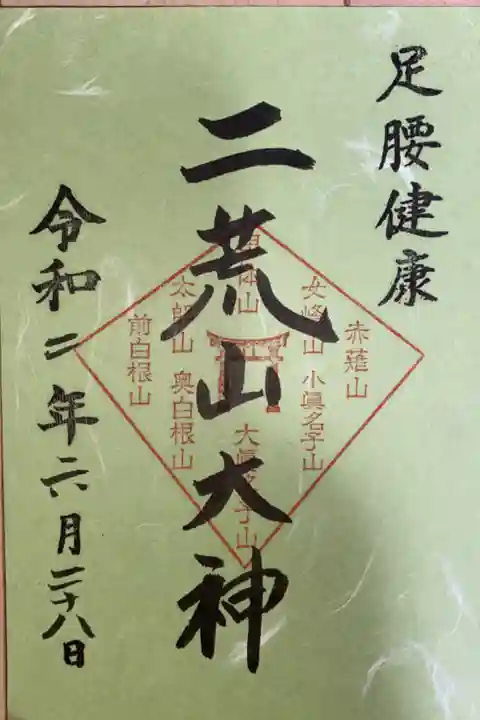 足腰健康
二荒山大神
令和二年六月二十八日
赤薙山
女峰山
小眞名子山
男体山
大眞名子山
太郎山
奥白根山
前白根山